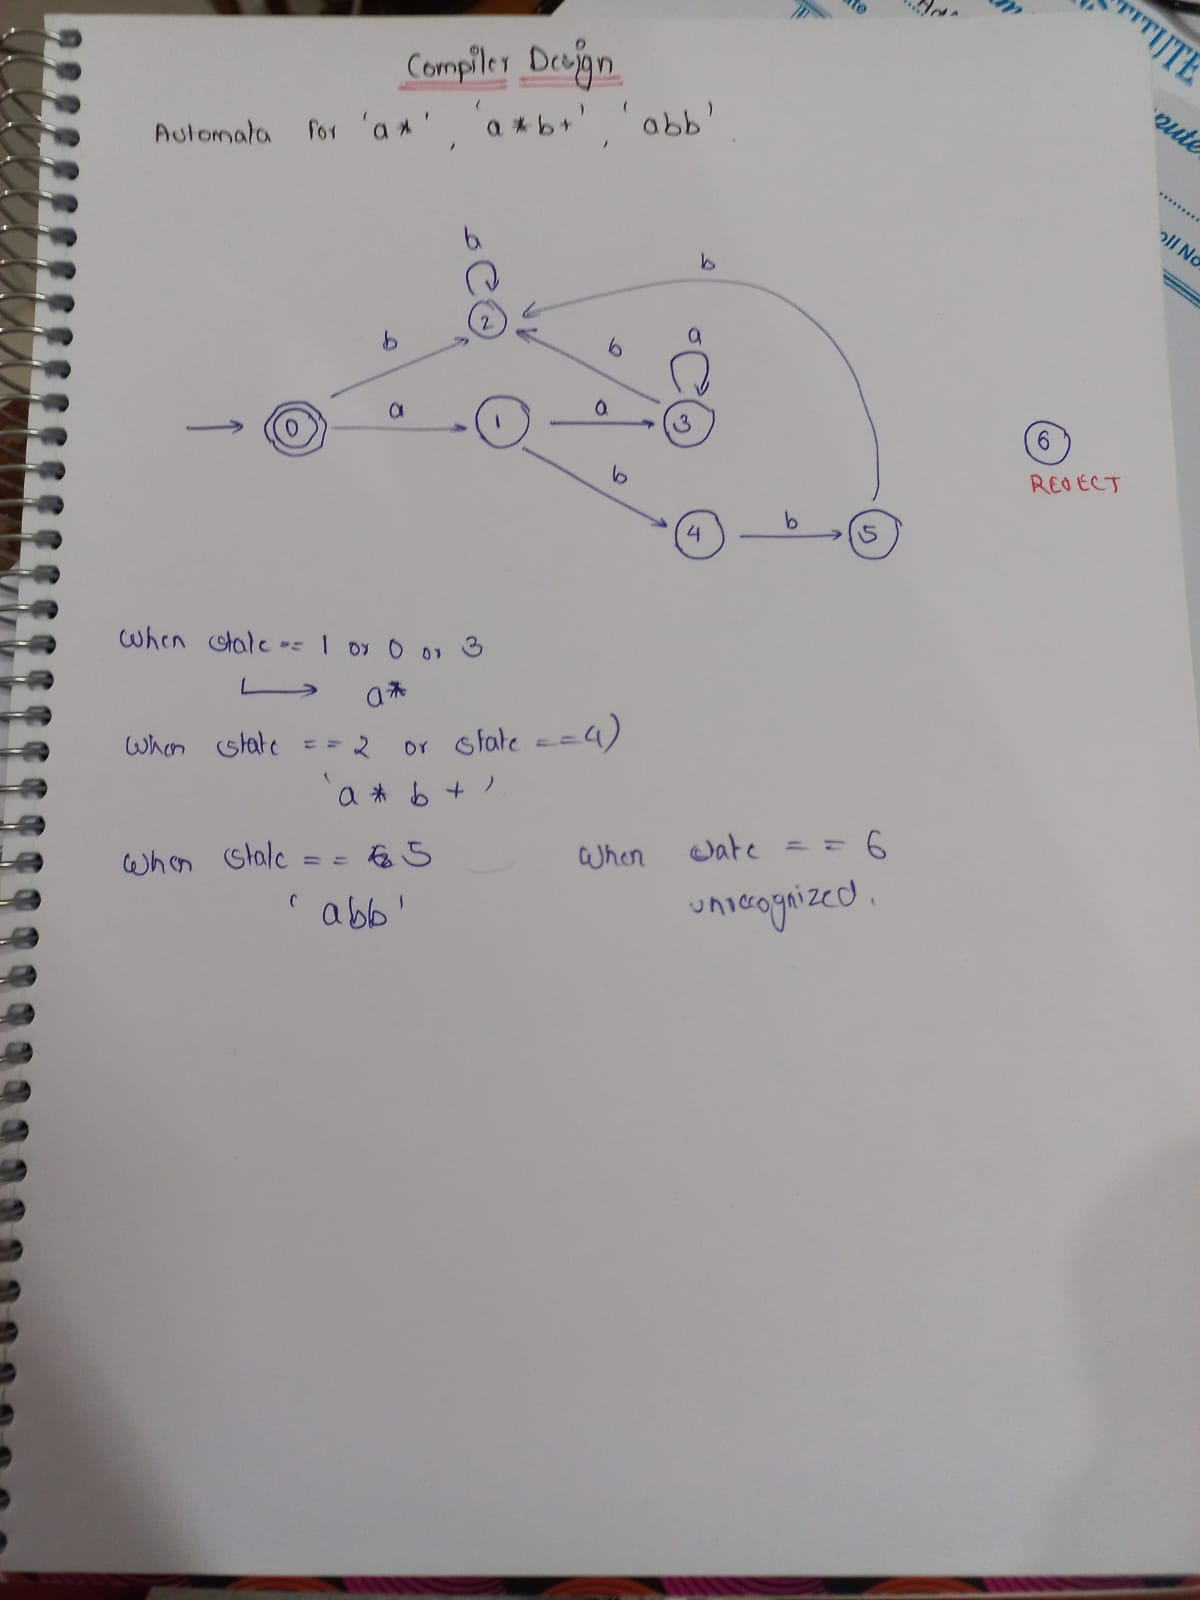 Compiler Design
Automata for 'a*', 'a*b+', 'abb'.
b
b
2
b
b
a
0
a
1
a
3
b
4
b
5
6
REJECT
When state == 1 or 0 or 3
a*
When state == 2 or state == 4)
'a * b + '
When state == 5
' abb '
When state == 6
unrecognized.
STITUTE
oll No